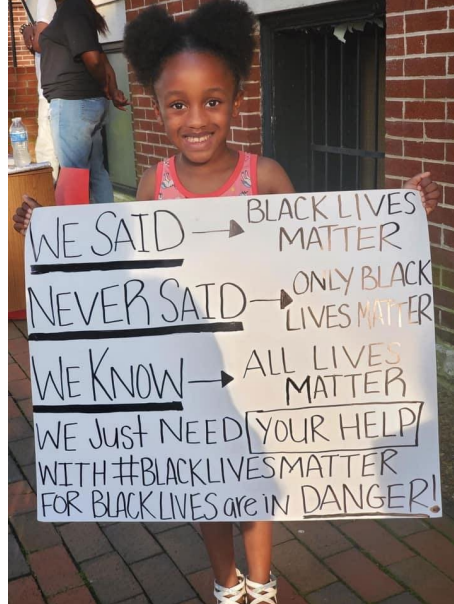 WE SAID → BLACK LIVES
MATTER
NEVER SAID → ONLY BLACK
LIVES MATTER
WE KNOW → ALL LIVES
MATTER
WE JUST NEED YOUR HELP
WITH #BLACKLIVESMATTER
FOR BLACK LIVES are iN DANGER!